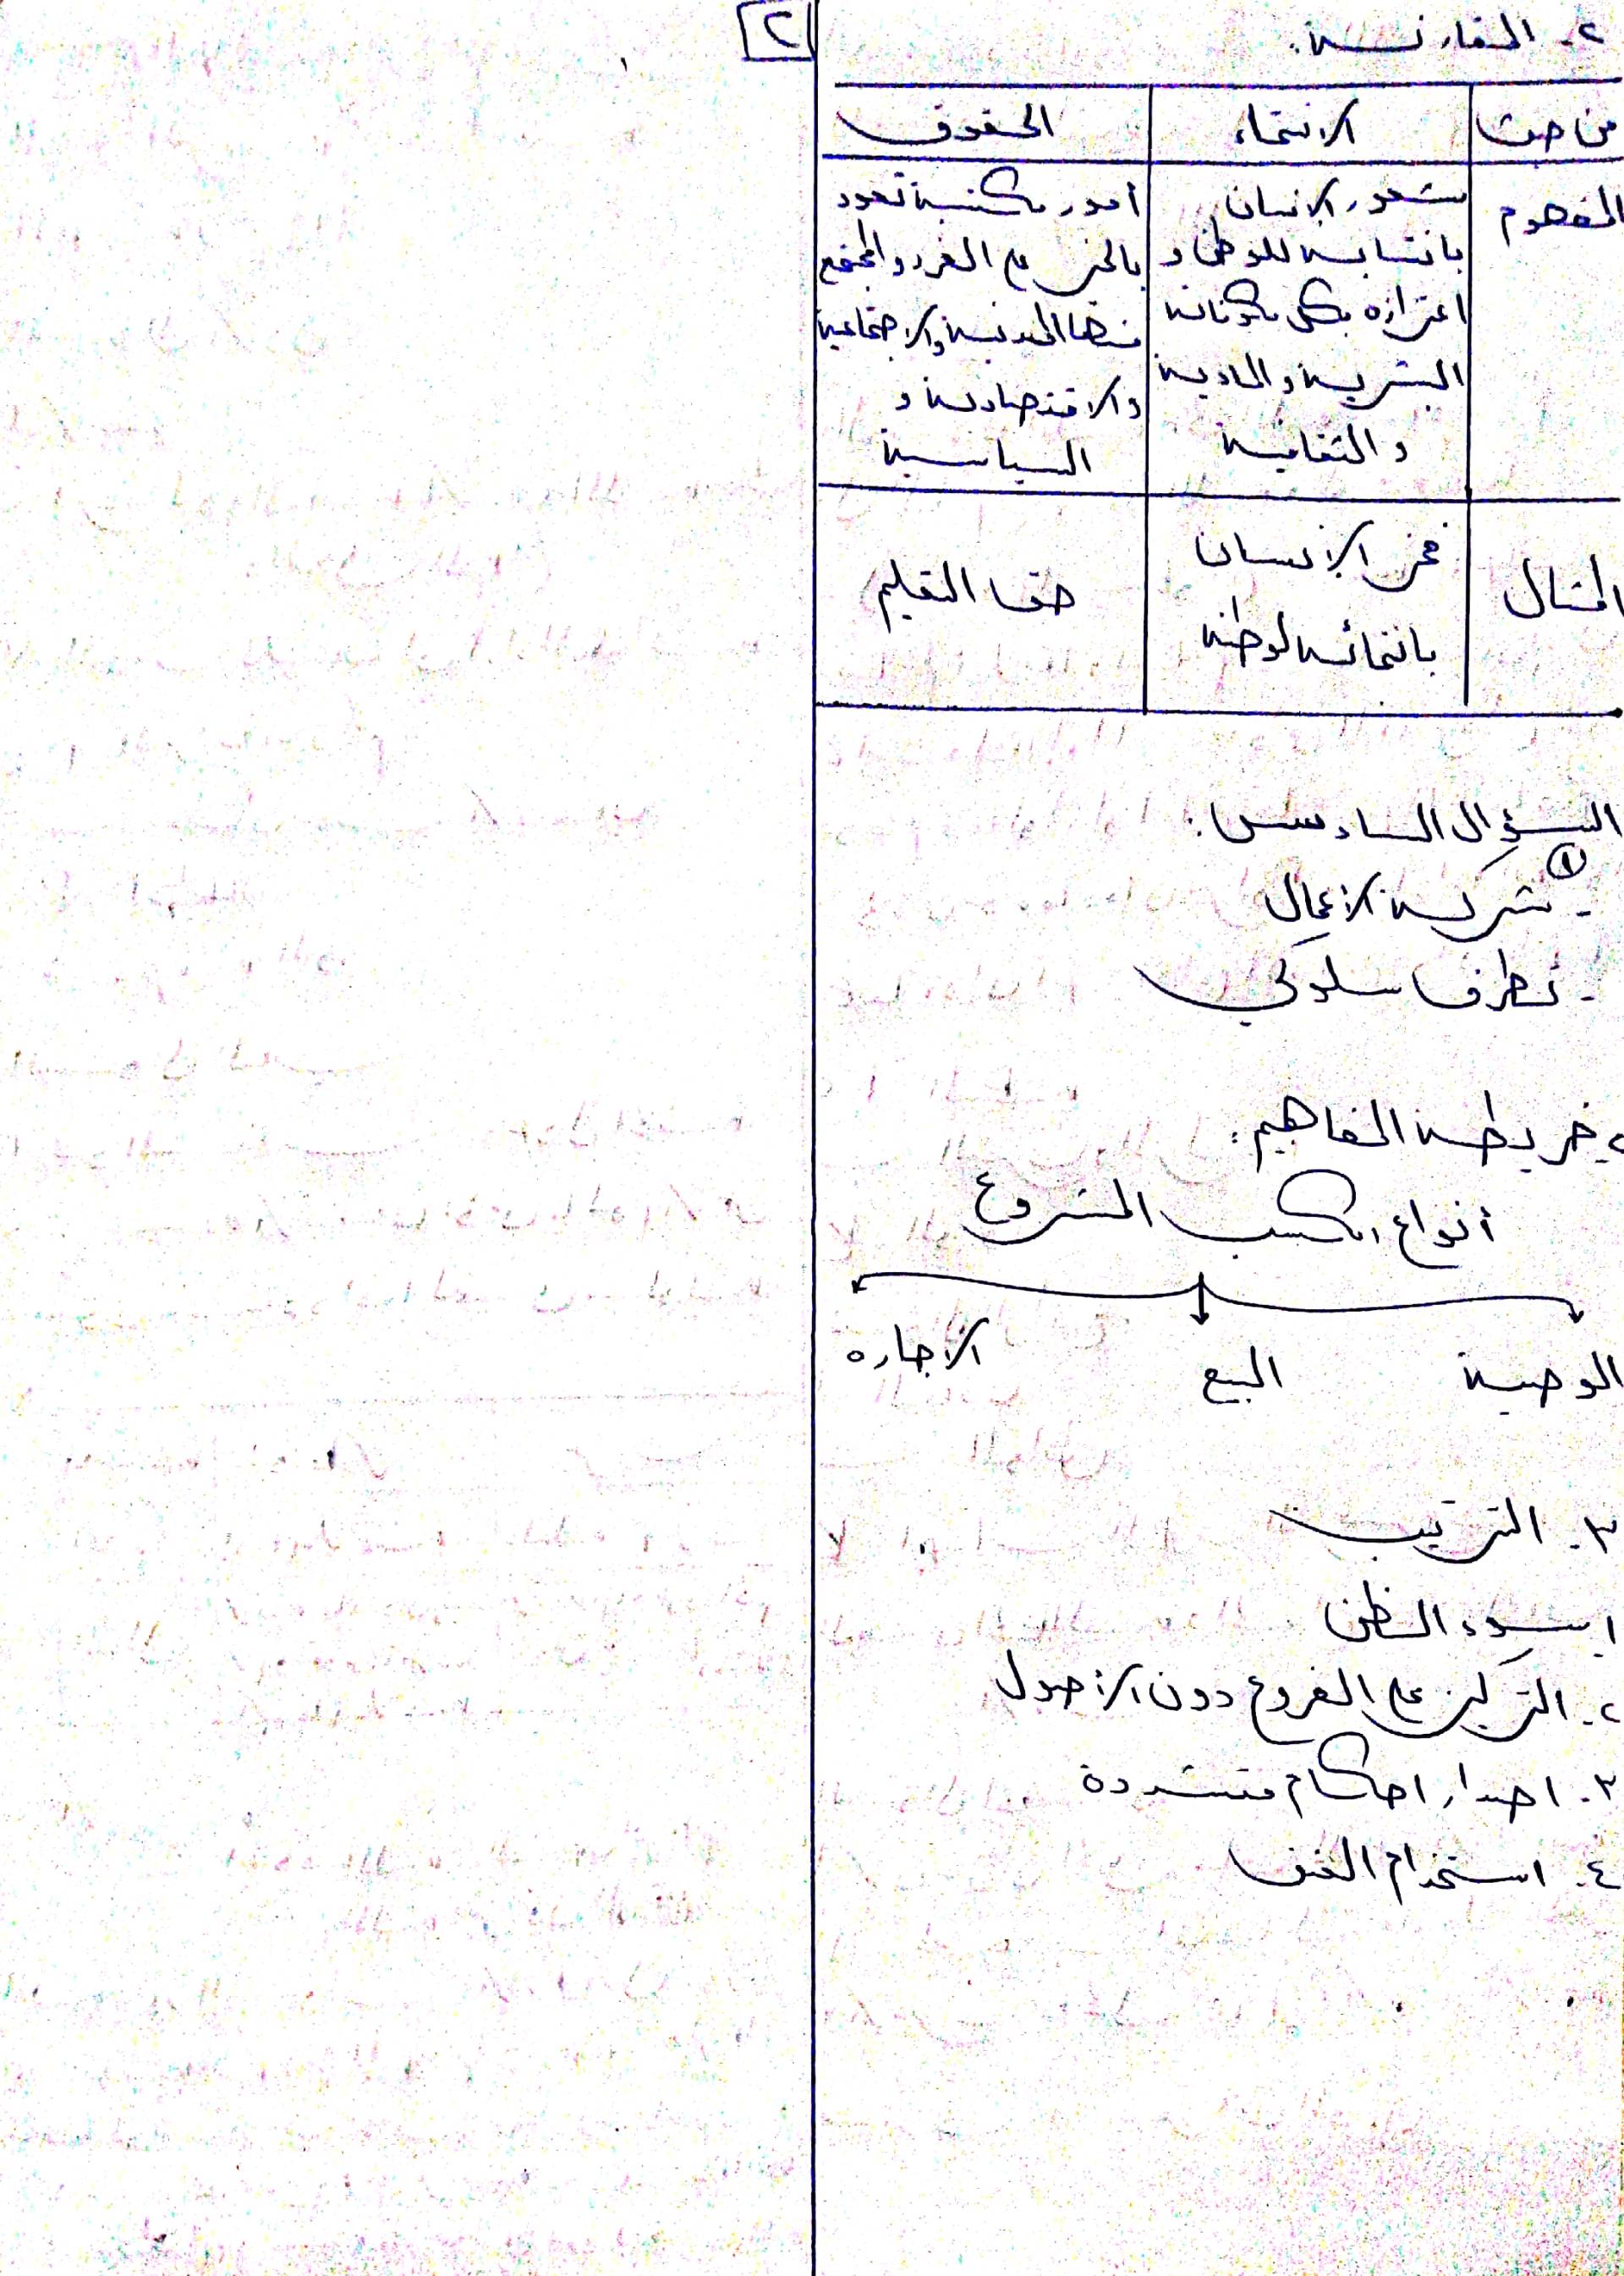 ٢
٢- المقارنة:
من حيث
الانتماء
الحقوق
المفهوم
شعور الانسان
بانتسابه للوطن و
اعتزازه بكل مكوناته
البشرية والمادية
و الثقافية
أمور مكتسبة تعود
بالخير على الفرد والمجتمع
منها المدنية والاجتماعية
والاقتصادية و
السياسية
المثال
فخر الإنسان
بانتمائه لوطنه
حق التعليم
السؤال السادس:
١
- شركة الأعمال
- تطرف سلوكي
٢- خريطة المفاهيم:
أنواع الكسب المشروع
الوصية
البيع
الاجاره
٣- الترتيب
١- سوء الظن
٢- التركيز على الفروع دون الأصول
٣- اصدار احكام متشددة
٤- استخدام العنف